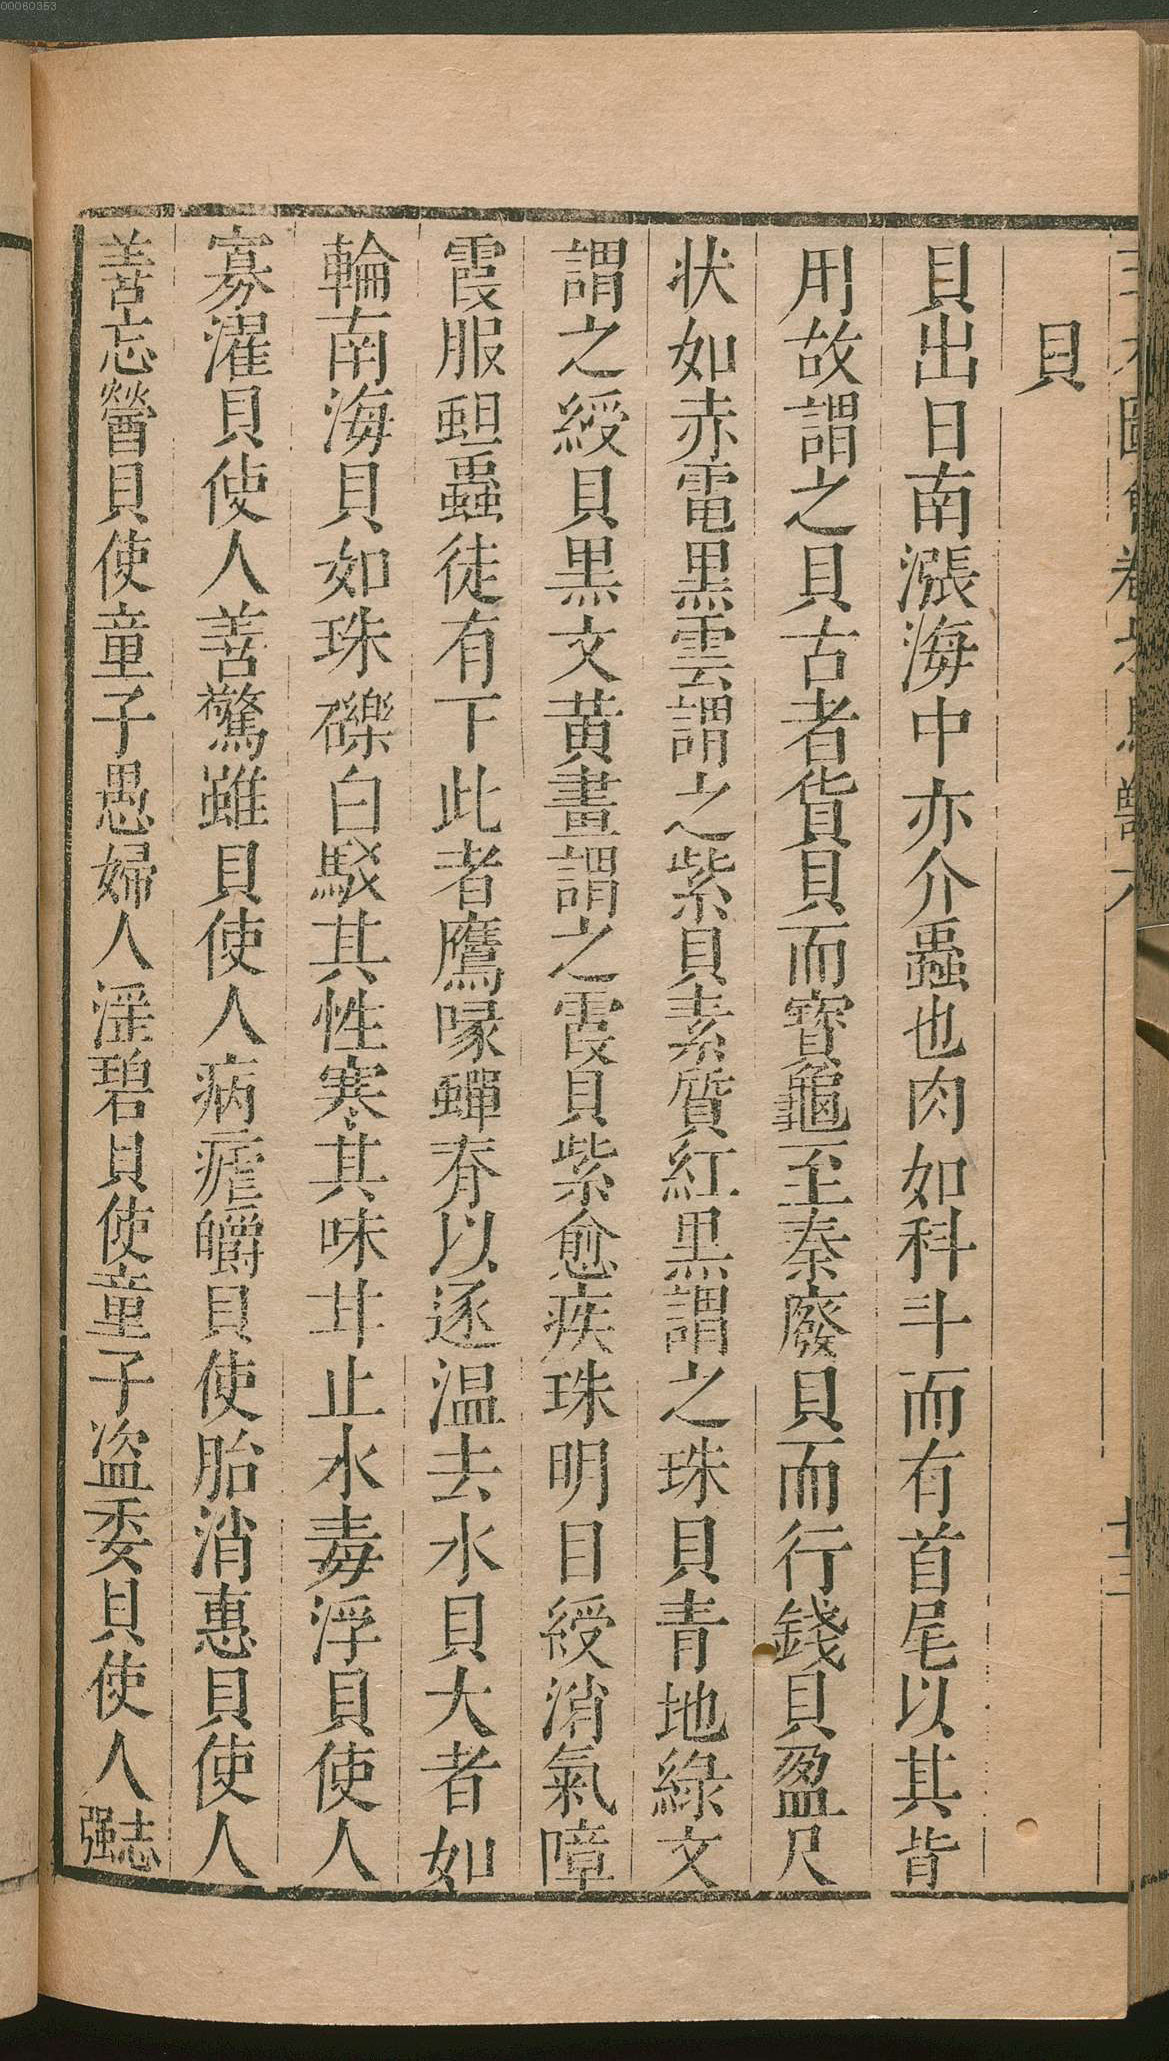 00060353
貝
貝出日南漲海中亦介蟲也肉如科斗而有首尾以其皆
用故謂之貝古者貨貝而寶龜至秦廢貝而行錢貝盈尺
状如赤電黒雲謂之紫貝素質紅黒謂之珠貝青地綠文
謂之綬貝黒文黄畫謂之霞貝紫愈疾珠明目綬消氣嶂
霞服蛆蟲徒有下此者鷹喙蟬脊以逐温去水貝大者如
輪南海貝如珠礫白駁其性寒其味甘止水毒浮貝使人
寡濯貝使人善驚雖貝使人病瘧皭貝使胎消惠貝使人
善忘䁝貝使童子愚婦人淫碧貝使童子盗委貝使人志强